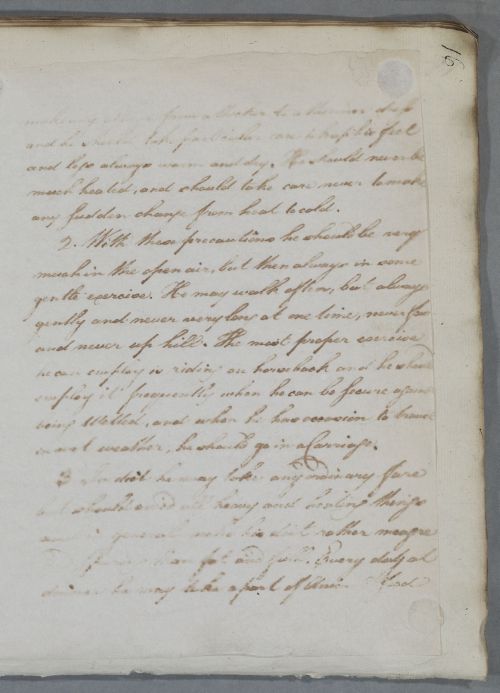 16
making any change from a thicker to a thinner dress
and he should take particular care to keep his feet
and legs always warm and dry. He should never be
much heated, and should take care never to make
any sudden change from heat to cold.
2. With these precautions he should be very
much in the open air, but then always in some
gentle exercise. He may walk often, but always
gently and never very long at one time, never far
and never up hill. The most proper exercise
he can employ is riding on horseback and he should
employ it frequently when he can be secure against
being Wetted, and when he has occasion to travel
in wet weather, he should go in a Carriage.
3 In diet he may take any ordinary fare
but should avoid all heavy and heating things
and in general make his diet rather meagre
than fat and full. Every day at
dinner he may take a pint of